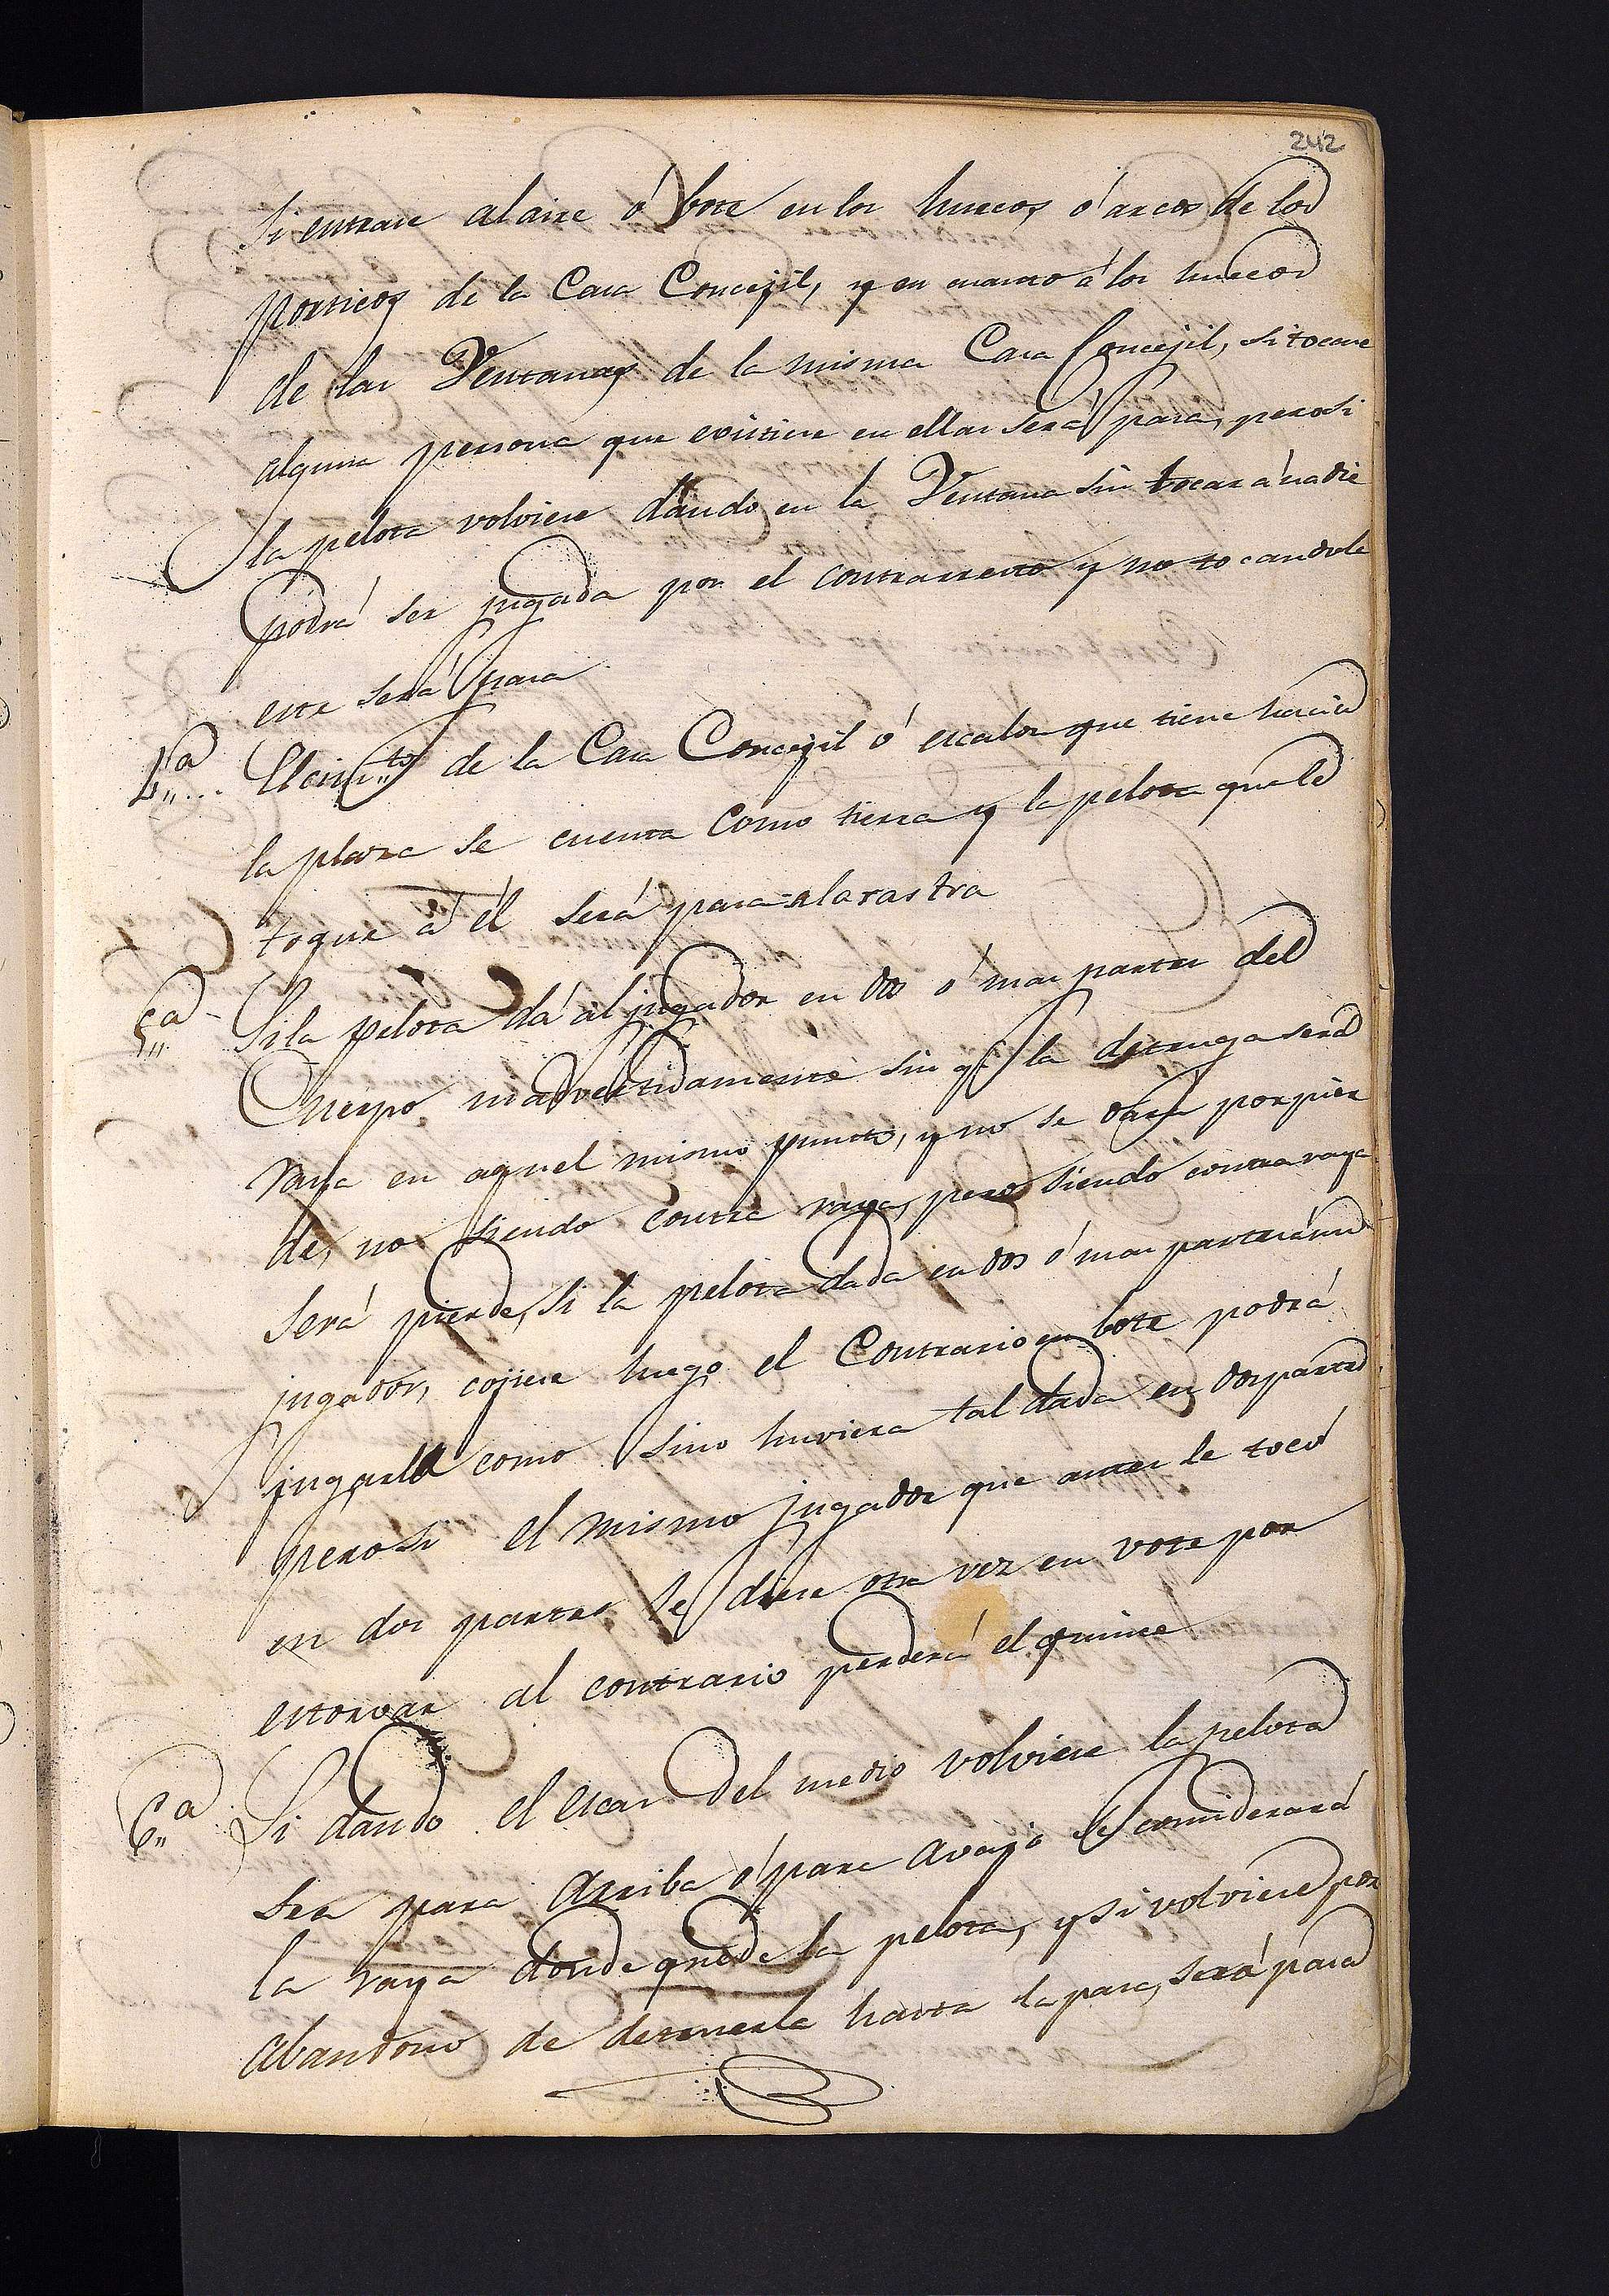 242
Si entrare al aire ó bote en los huecos ó arcos de los
porticos de la Casa Concejil, y en cuanto á los huecos
de las Ventanas de la misma Casa Concejil, si tocare
alguna persona que existiere en ellas será para, pero si
la pelota volviere dando en la Ventana sin tocar á nadie
podrá ser jugada por el contrarresto y no tocandole
este será para
4,,ª... El cim,,to de la Casa Concejil ó escalon que tiene hacia
la plaza se cuenta como tierra y la pelota que le
toque á él será para=alarastra
5,,ª Si la pelota dá al jugador en dos ó mas partes del
Cuerpo inadvertidamente sin q.e la detenga será
raya en aquel mismo punto, y no se dará por pier
de, no siendo contra raya, pero siendo contra raya
será pierde, si la pelota dada en dos ó mas partes á un
jugador, cojiere luego el Contrario en bote podrá
jugarla como sino huviera tal dada en dos partes
pero si el mismo jugador que antes le tocó
en dos partes le diere otra vez en vote por
estorvar al contrario perderá el quince
6,,ª Si dando el escas del medio volviere la pelota
sea para arriba ó para avajo se considerará
la raya donde quede la pelota, y si volviere por
abandono de detenerla hasta la para, será para